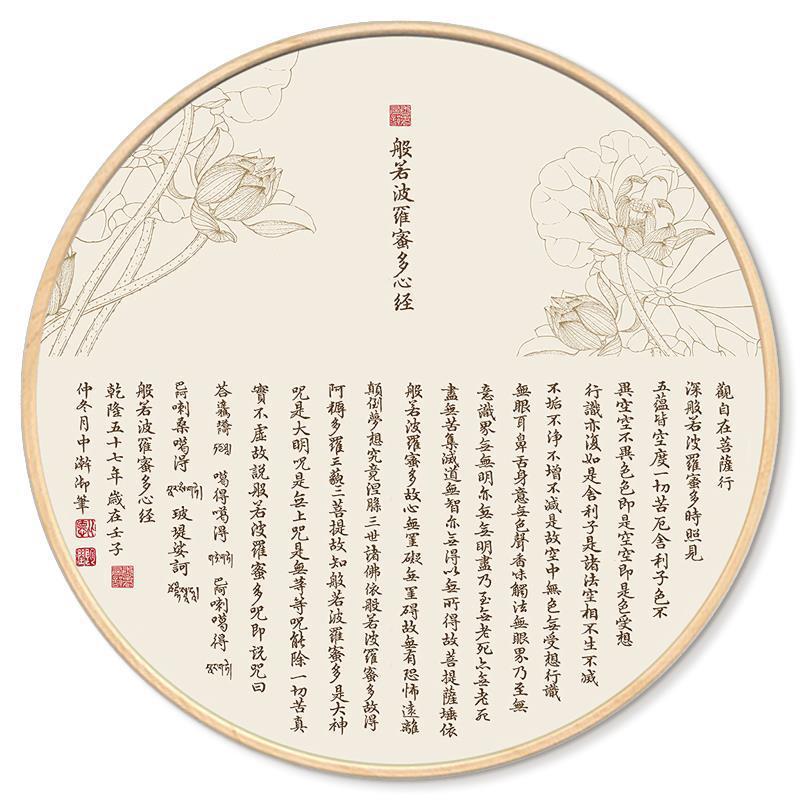 般若波羅蜜多心经
觀自在菩薩行
深般若波羅蜜多時照見
五蕴皆空度一切苦厄舍利子色不
異空空不異色色即是空空即是色受想
行識亦復如是舍利子是諸法空相不生不滅
不垢不淨不增不減是故空中無色無受想行識
無眼耳鼻舌身意無色聲香味觸法無眼界乃至無
意識界無無明亦無無明盡乃至無老死亦無老死
盡無苦集滅道無智亦無得以無所得故菩提薩埵依
般若波羅蜜多故心無罣礙無罣碍故無有恐怖遠離
顛倒夢想究竟涅槃三世諸佛依般若波羅蜜多故得
阿耨多羅三藐三菩提故知般若波羅蜜多是大神
咒是大明咒是無上咒是無等等咒能除一切苦真
實不虛故説般若波羅蜜多咒即説咒曰
噶得噶得 喇噶得
喇桑噶得 玻堤娑訶
般若波羅蜜多心经
乾隆五十七年歲在壬子
仲冬月中澣御筆